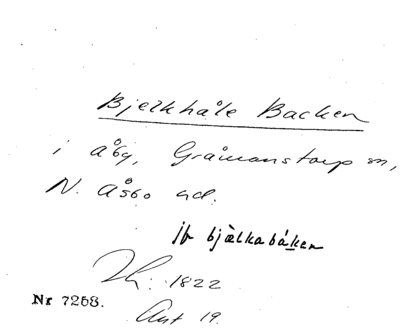 Bjelkhåle Backen
i Åby, Gråmanstorp sn,
N. Åsbo hd.
jfr bjälkabáken
Th: 1822
Nr 7268.
Avt 19.